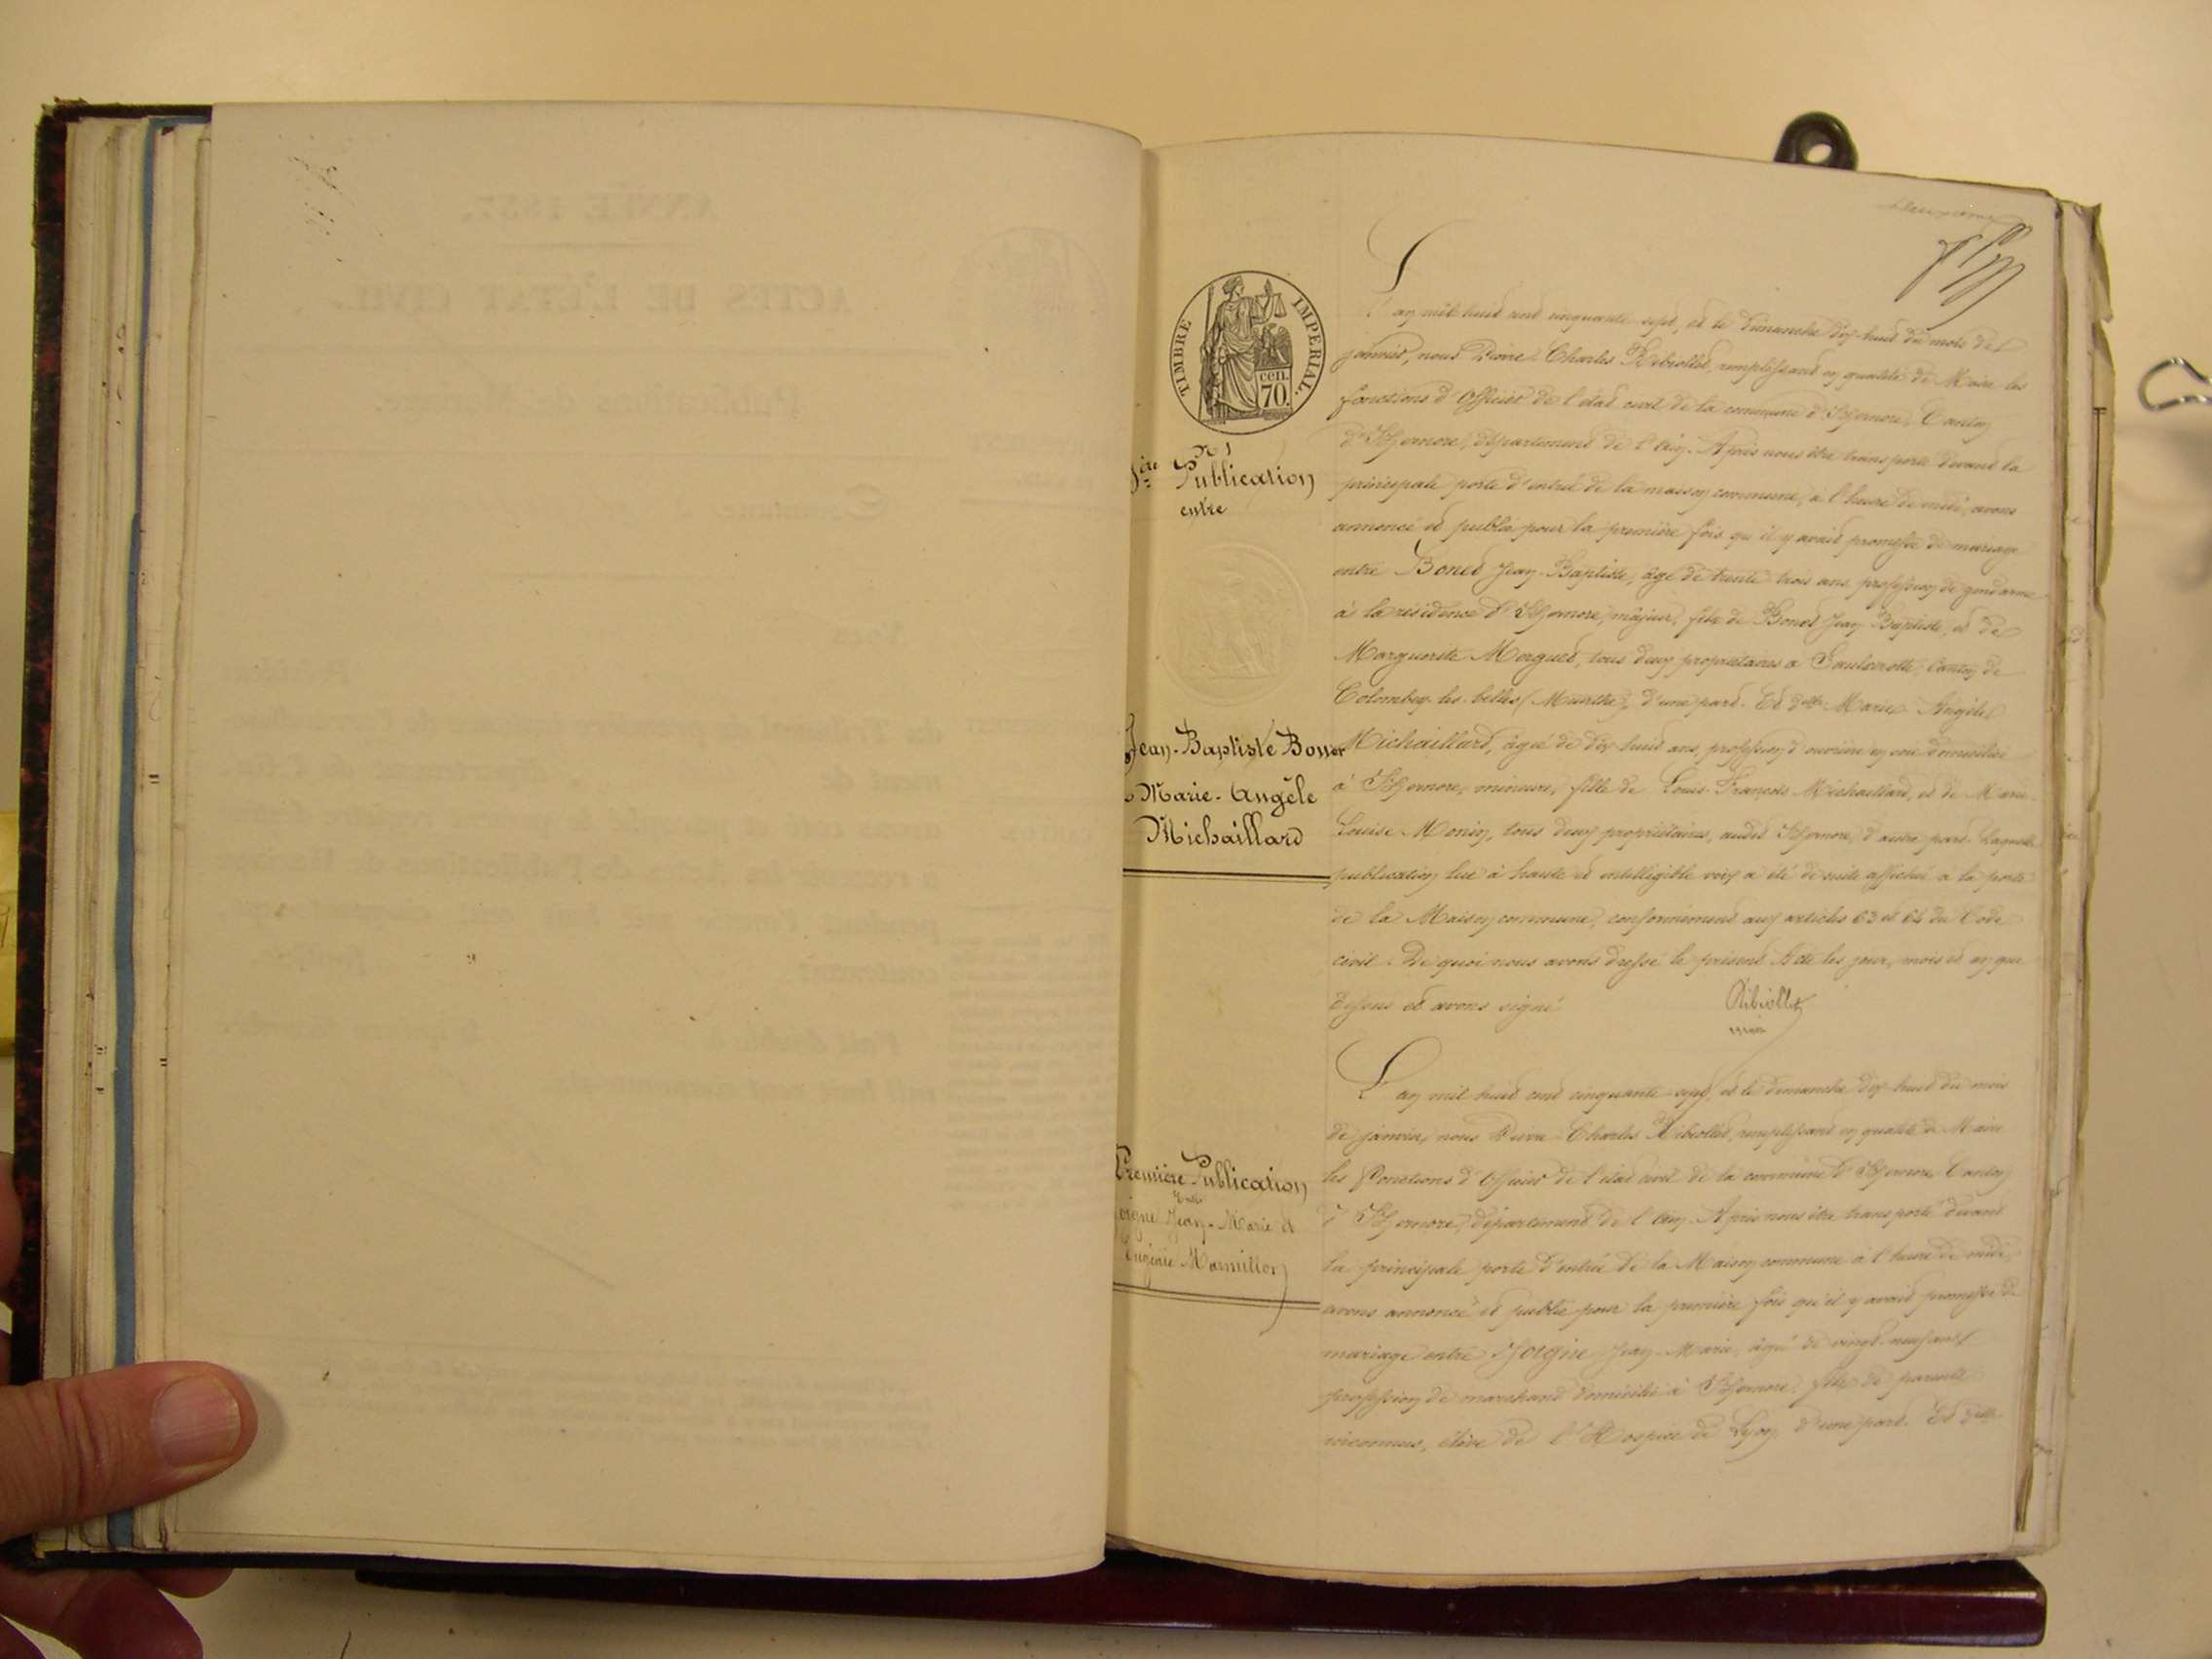 TIMBRE IMPERIAL.
cen.
70.
N° 1
1ère Publication
entre
Jean-Baptiste Bonet
Marie-Angèle
Michaillard
L'an mil huit cent cinquante-sept, et le dimanche dix-huit du mois de
janvier, nous Pierre Charles Ribiollet, remplissant en qualité de Maire les
fonctions d'Officier de l'état civil de la commune d'Izernore, Canton
d'Izernore, département de l'Ain. Après nous être transporté devant la
principale porte d'entrée de la maison commune, à l'heure de midi, avons
annoncé et publié pour la première fois qu'il y avait promesse de mariage
entre Bonet Jean-Baptiste, âgé de trente trois ans, profession de gendarme
à la résidence d'Izernore, majeur, fils de Bonet Jean Baptiste, et de
Marguerite, tous deux propriétaires à Saulxerotte, Canton de
Colombey-les-belles (Meurthe), d'une part. Et dlle Marie Angèle
Michaillard, âgée de dix huit ans, profession d'ouvrière en soie domiciliée
à Izernore, mineure, fille de Louis-François Michaillard, et de Marie
Louise Monin, tous deux propriétaires, audit Izernore, d'autre part. Laquelle
publication lue à haute et intelligible voix a été de suite affichée à la porte
de la Maison commune, conformément aux articles 63 et 64 du Code
civil. De quoi nous avons dressé le présent Acte les jour, mois et an que
dessus et avons signé
Ribiollet
maire
Première Publication
Entre
Jean-Marie et
Eugénie Marmillon
L'an mil huit cent cinquante-sept, et le dimanche dix-huit du mois
de janvier, nous Pierre Charles Ribiollet, remplissant en qualité de Maire
les fonctions d'Officier de l'état civil de la commune d'Izernore Canton
d'Izernore, département de l'Ain. Après nous être transporté devant
la principale porte d'entrée de la Maison commune à l'heure de midi,
avons annoncé et publié pour la première fois qu'il y avait promesse de
mariage entre Jean-Marie, âgé de vingt-neuf ans,
profession de marchand domicilié à Izernore, fils de parents
inconnus, élève de l'Hospice de Lyon, d'une part. Et dlle